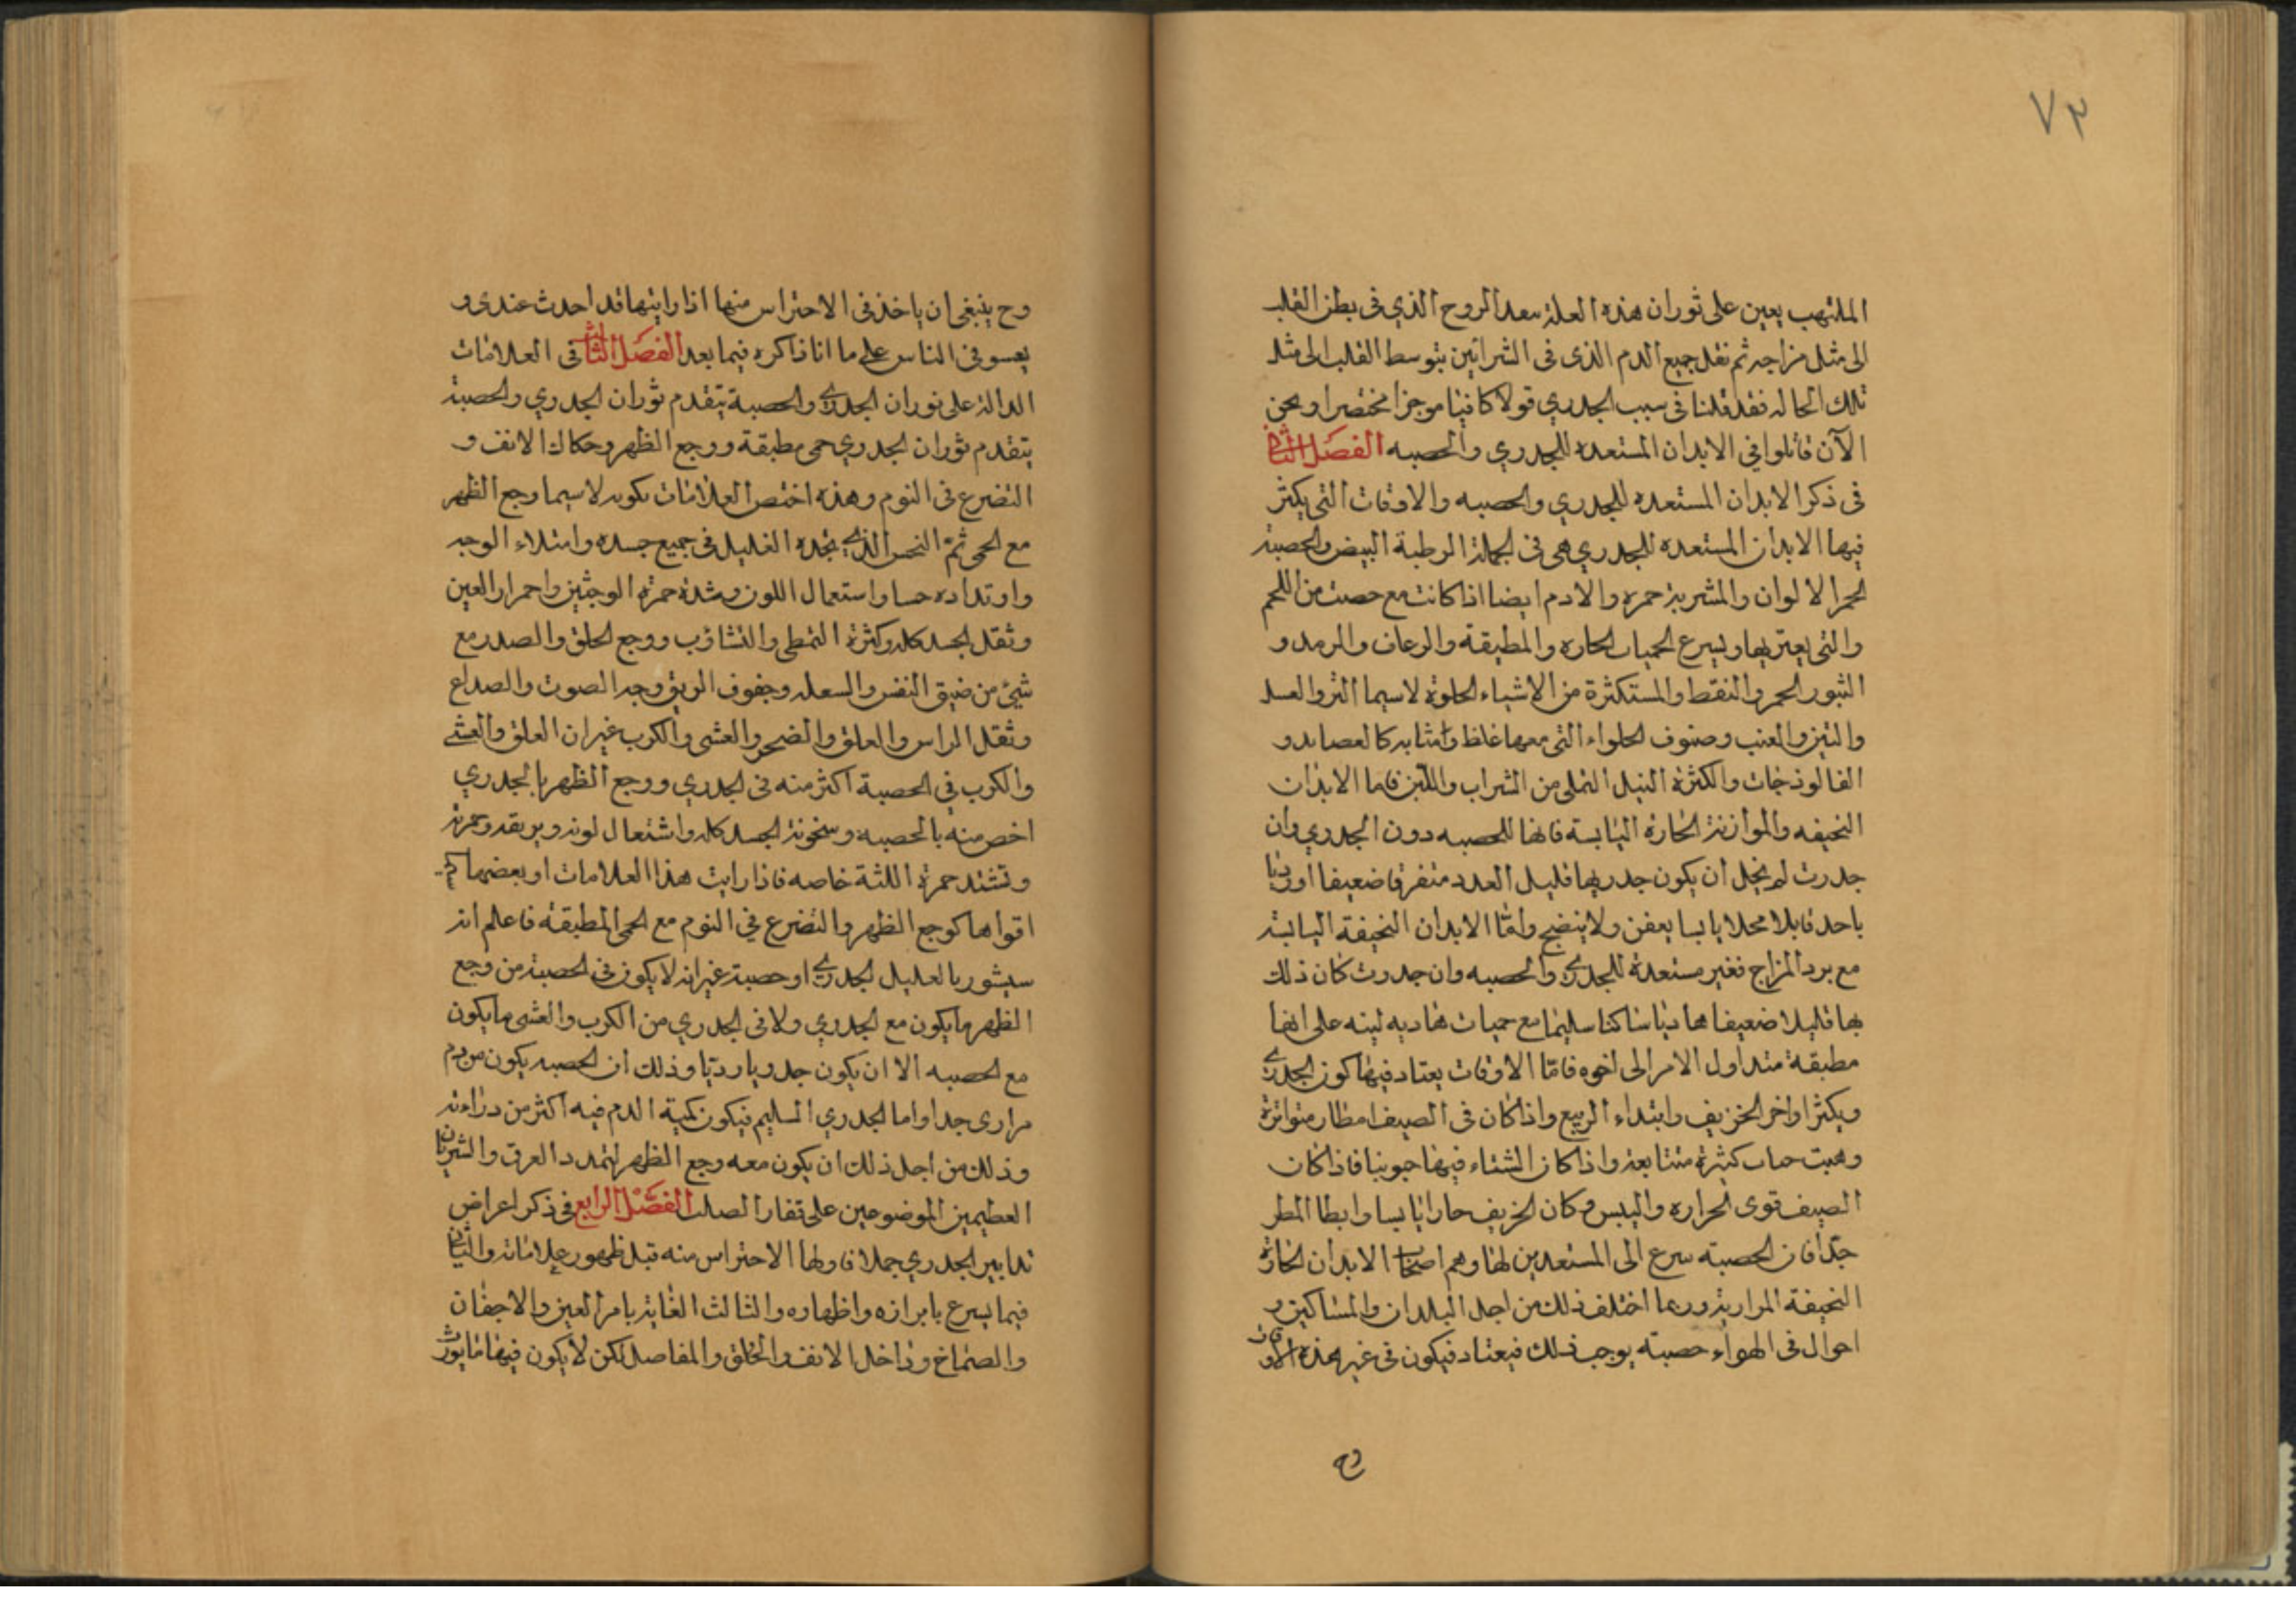 ٧٣
الملتهب يعين على ثوران هذه العلة بعد الروح الذي فى بطن القلب
الى مثل مزاجه ثم نقل جميع الدم الذى فى الشرائين بتوسط القلب الى مثل
تلك الحاله فقد قلنا فى سبب الجدري قولا كافيا موجزا مختصرا ونحن
الآن قائلوا في الابدان المستعده للجدري والحصبه الفصل الثانى
فى ذكر الابدان المستعده للجدري والحصبه والاوقات التى يكثر
فيها الابدان المستعده للجدري هى فى الجملة الرطبة البيض والحصبة
الحمر الالوان والمشربة حمره والادم ايضا اذا كانت مع حصت من اللحم
والتى يعتريها ويسرع الحميات الحاره والمطبقة والرعاف والرمد و
الثبور الحمر والنقط والمستكثرة من الاشياء الحلوة لاسيما التمر والعسل
والتين والعنب وصنوف الحلواء التى معها غلظ وامثابه كالعصايد و
الفالوذجات والكثرة النيل التملى من الشراب واللبن فاما الابدان
النحيفه والموازنة الحارة اليابسة فانها للحصبه دون الجدري وان
جدرت لم نجل ان يكون جدريها قليل العدد متفرقا ضعيفا او رديا
باحد قابلا محلا يابسا يعفن ولا ينضج وامّا الابدان النحيفة اليابسة
مع برد المزاج فغير مستعدة للجدري والحصبه وان جدرت كان ذلك
بها قليلا ضعيفا هاديا ساكنا سليما مع حميات هاديه لينه على انها
مطبقة منذ اول الامر الى اخره فامّا الاوقات يعتاد فيها كون الجدري
ويكثر اواخر الخريف وابتداء الربيع واذا كان فى الصيف امطار متواترة
وهبت كثيرة متتابعة واذا كان الشتاء فيها جوبنيا فاذا كان
الصيف قوى الحراره واليبس وكان الخريف حارا يابسا وابطا المطر
جدّا فان الحصبته سرع الى المستعدين لها وهم اصحاب الابدان الحارّة
النحيفة المرارية وربما اختلف ذلك من اجل البلدان والمساكين و
احوال فى الهواء حصبته يوجب ذلك فيعتاد فيكون فى غير هذه الاوقات
وح
وح ينبغى ان ياخذ فى الاحتراس منها اذا رايتها قد احدث عندى و
يعسو فى الناس على ما انا ذاكره فيما بعد الفصل الثالث فى العلامات
الدالة على ثوران الجدري والحصبة يتقدم ثوران الجدري والحصبة
يتقدم ثوران الجدري حمى مطبقة ووجع الظهر وحكاك الانف و
التضرع فى النوم وهذه اختص العلامات بكونه لاسيما وجع الظهر
مع الحمى ثمّ النحس الذي يجده العليل فى جميع جسده وامتلاء الوجه
وارتداده حسا واستعمال اللون وشدة حمرة الوجنين واحمرار العين
وثقل الجسد كله وكثرة التمطى والتثاؤب ووجع الحلق والصدر مع
شئ من ضيق النفس والسعله وجفوف الريق وجه الصوت والصداع
وثقل الراس والعلق والضجر والغشى والكرب غير ان العلق والغشى
والكرب في الحصبة اكثر منه فى الجدري ووجع الظهر بالجدري
اخص منه بالحصبه وسخونة الجسد كله واشتعال لونه وبريقه وحمرته
وتشتد حمرة اللثة خاصه فاذا رايت هذا العلامات او بعضها
اقواها كوجع الظهر والتضرع في النوم مع الحمى المطبقة فاعلم انه
سيشور بالعليل الجدري او حصبة غير انه لا يكون فى الحصبة من وجع
الظهر ما يكون مع الجدري ولا فى الجدري من الكرب والغشى ما يكون
مع الحصبه الا ان يكون جدريا رديّا وذلك ان الحصبه يكون من دم
مرارى جدا واما الجدري السليم فيكون كمية الدم فيه اكثر من درائته
وذلك من اجل ذلك ان يكون معه وجع الظهر لتمدد العرق والشريان
العظيمين الموضوعين على تفقار الصلب الفصل الرابع فى ذكر اعراض
تدابير الجدري جملا فاولها الاحتراس منه قبل ظهور علاماته والثانى
فيما يسرع بابرازه واظهاره والثالث الغاية بامر العين والاجفان
والصماخ وداخل الانف والحلق والمفاصل لكن لا يكون فيها ما يورث